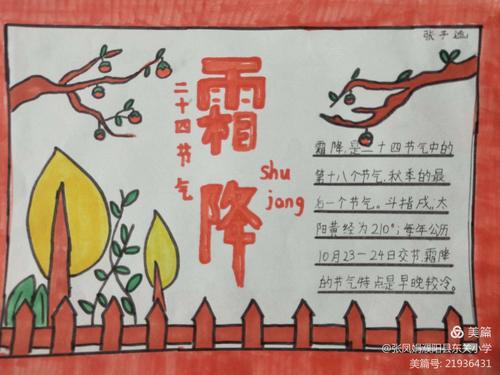 张子逸
二十四节气
霜降
shu
jang
霜降,是二十四节气中的
第十八个节气,秋季的最
后一个节气。斗指戌,太
阳黄经为210°;每年公历
10月23-24日交节,霜降
的节气特点是早晚较冷。
美篇
@张凤娟濮阳县东关小学
美篇号: 21936431